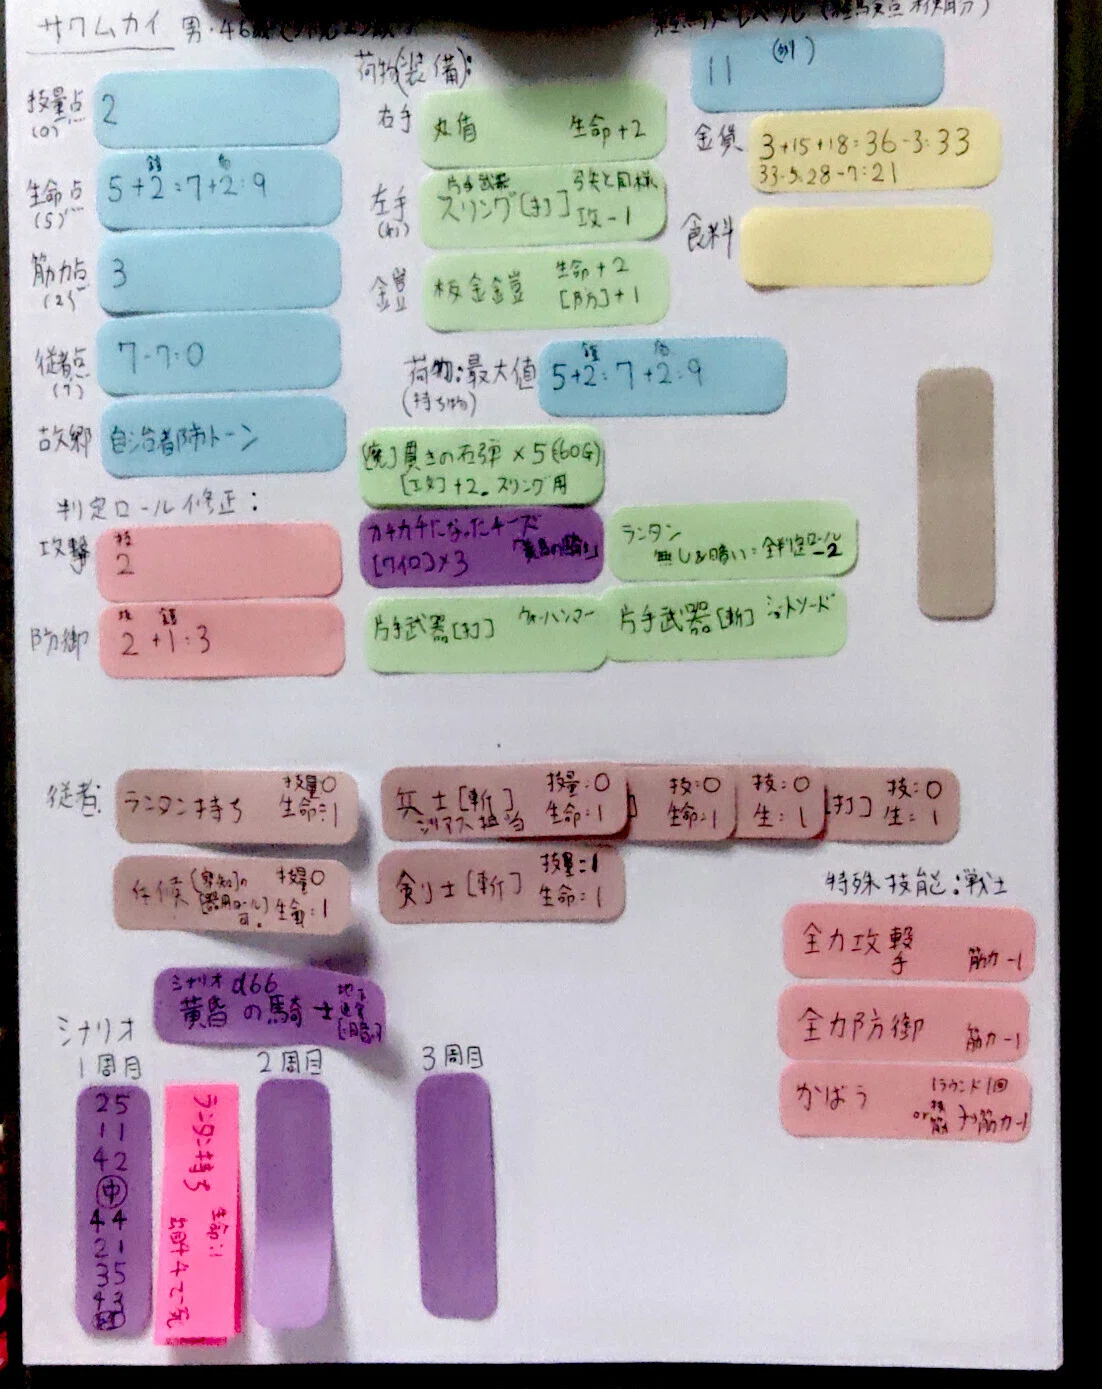 サワムカイ 男・46歳
荷物(装備):
技量点
(0)
2
右手
丸盾 生命+2
11
金貨
3+15+18=36-3=33
33-5=28-7=21
生命点
(5)
鎧 盾
5+2=7+2=9
左手
片手武器 弓矢と同様
スリング[打] 攻-1
食料
筋力点
(2)
3
鎧
板金鎧 生命+2
[防]+1
従者点
(7)
7-7=0
荷物:最大値
(持ち物)
鎧 盾
5+2=7+2=9
故郷
自治都市トーン
貫きの石弾×5(60G)
+2。スリング用
判定ロール修正:
攻撃
技
2
カチカチになったチーズ
[ワイロ]×3
ランタン
無しは暗い:全判定ロール-2
防御
技 鎧
2+1=3
片手武器[打] ウォーハンマー
片手武器[斬] ショートソード
従者:
ランタン持ち 技量0
生命:1
兵士[斬] 技量:0
シリアス担当 生命:1
技:0
生命:1
技:0
生:1
[打] 技:0
生:1
斥候 技量0
生命:1
剣士[斬] 技量:1
生命:1
特殊技能:戦士
全力攻撃 筋力-1
全力防御 筋力-1
かばう 1ラウンド1回
筋力-1
シナリオ
シナリオ d66
黄昏の騎士
1周目
25
11
42
中
44
21
35
43
ランタン持ち
生命:1
2周目
3周目